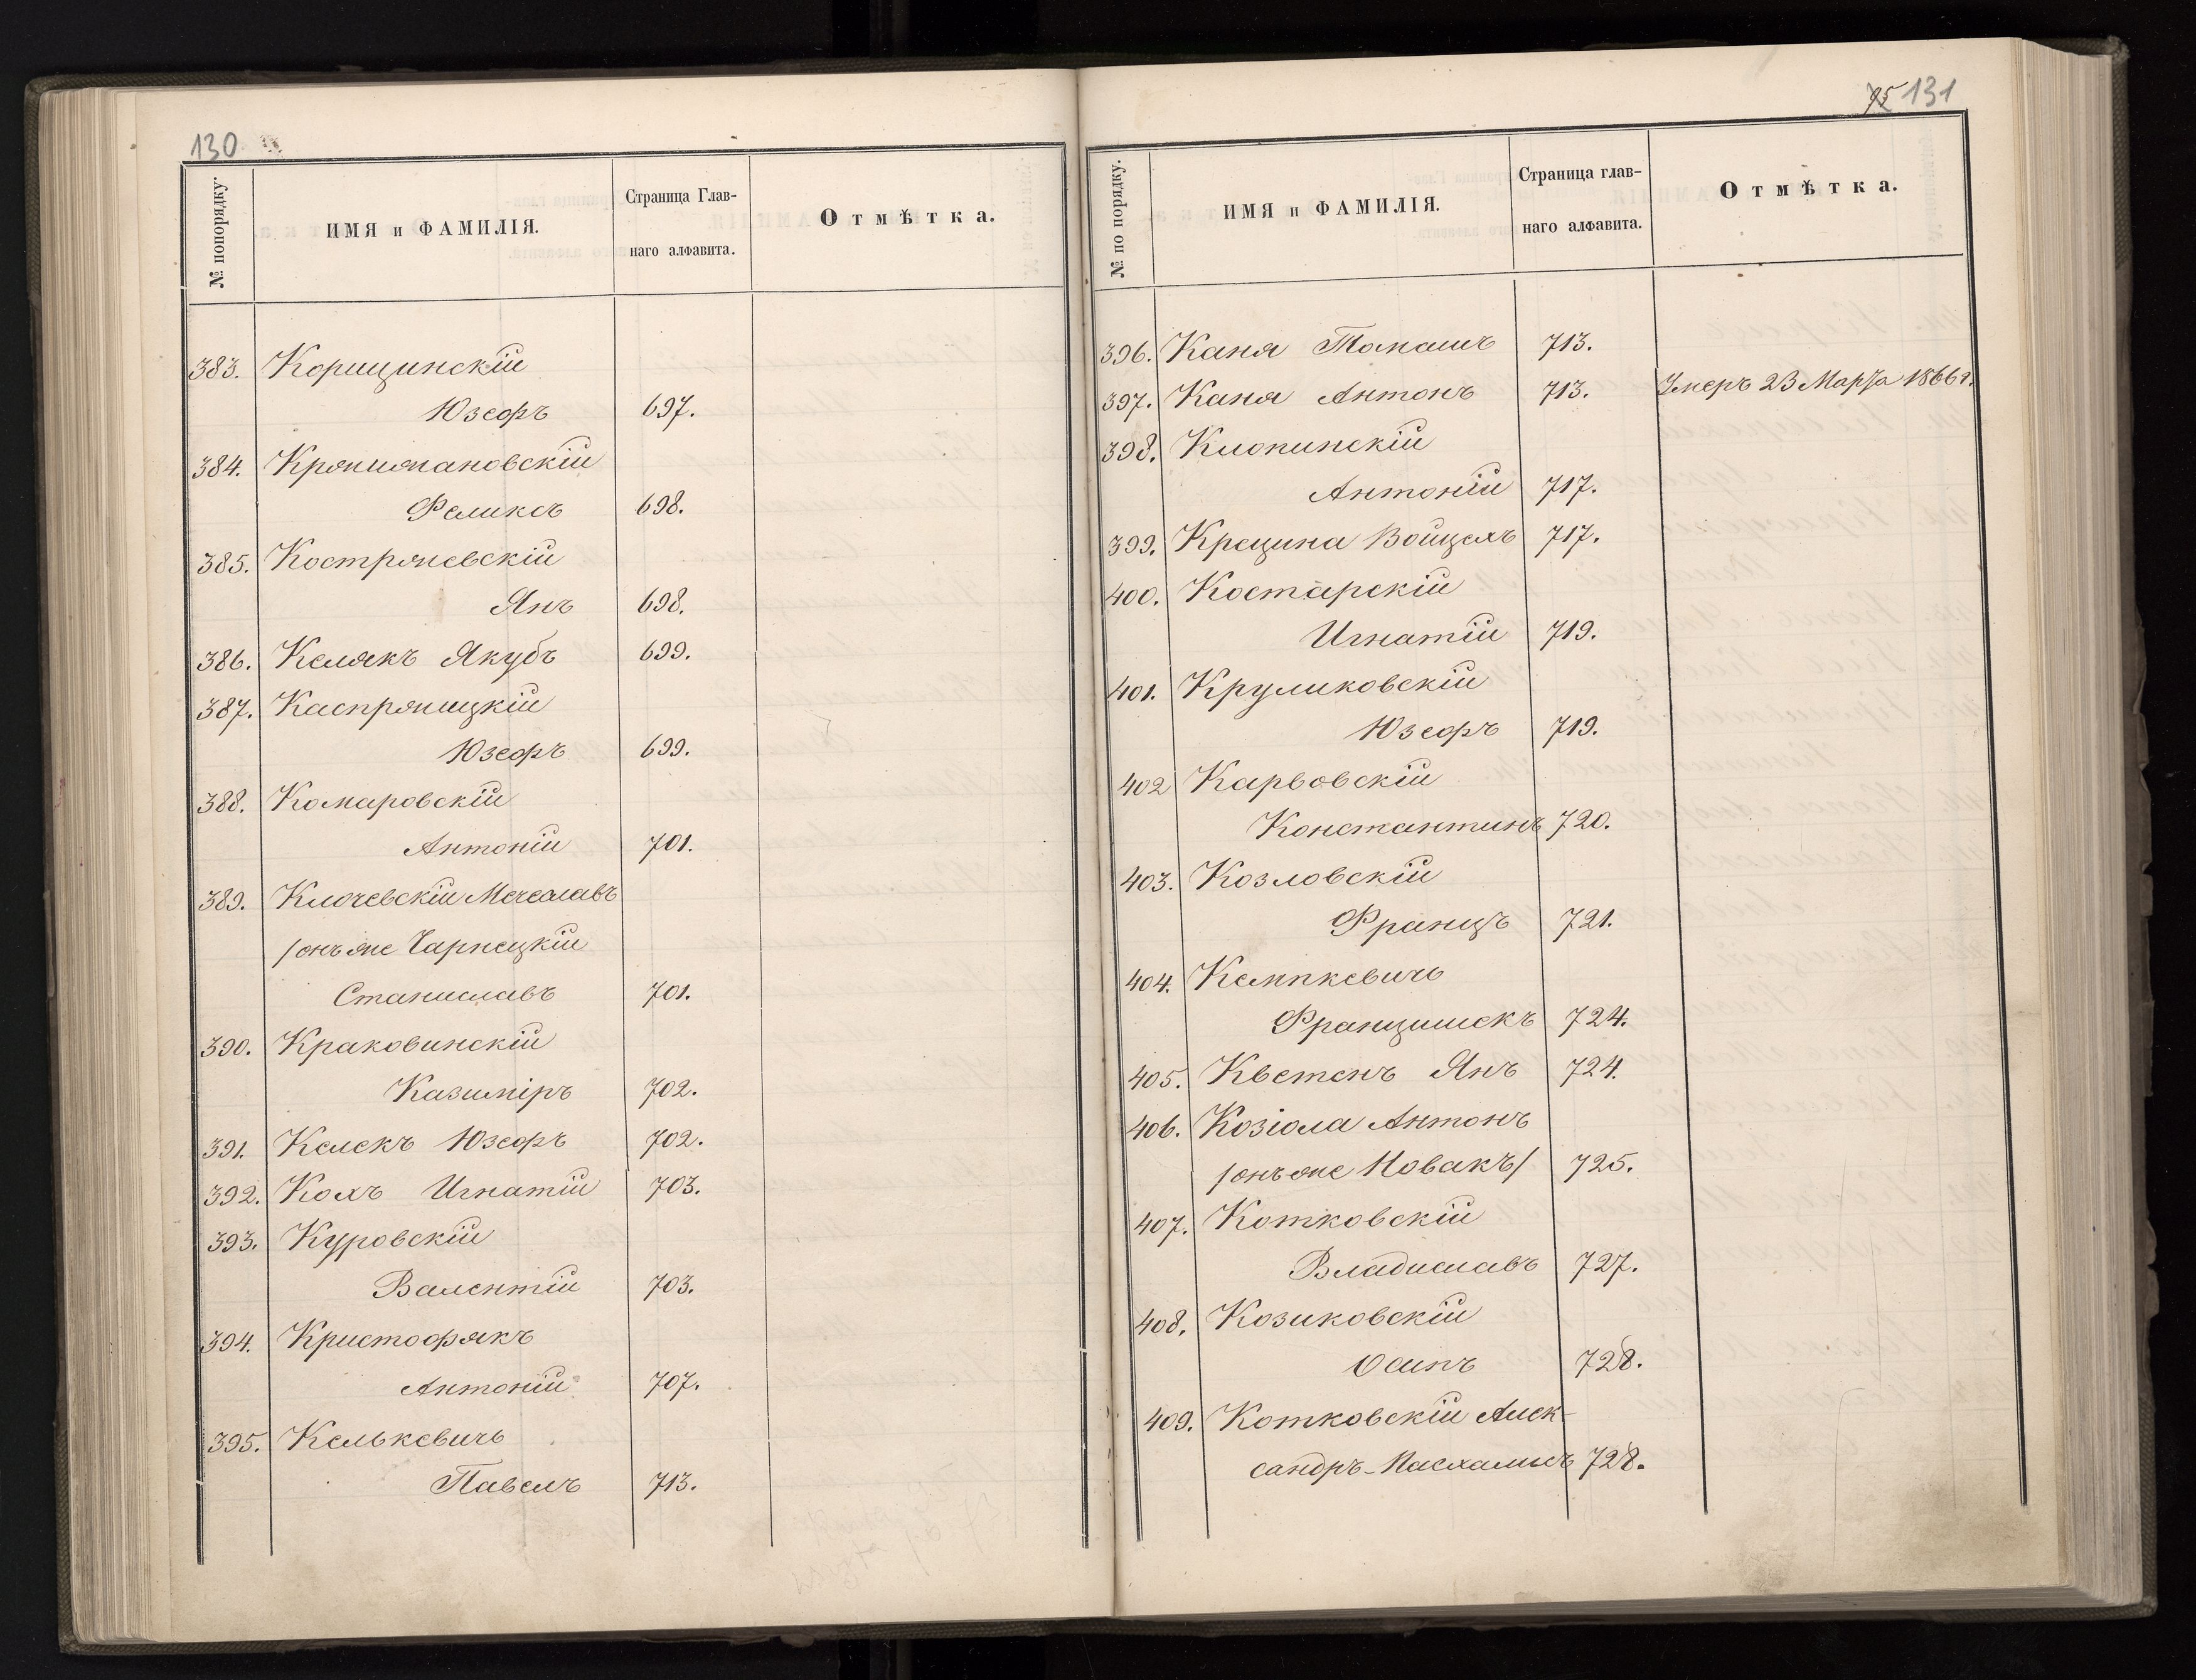 130
№ попорядку.
ИМЯ и ФАМИЛІЯ.
Страница Глав-
наго алфавита.
Отмѣтка.
383. Корицинскій
Юзефъ 697.
384. Кржижановскій
Феликсъ 698.
385. Костржевскій
Янъ 698.
386. Келякъ Якубъ 699.
387. Каспржицкій
Юзефъ 699.
388. Комаровскій
Антоній 701.
389. Ключевскій Мечеславъ
/онъ же Чарнецкій
Станиславъ 701.
390. Краковинскій
Казиміръ 702.
391. Келекъ Юзефъ 702.
392. Колъ Игнатій 703.
393. Куровскій
Валентій 703.
394. Кристофякъ
Антоній 707.
395. Келькевичъ
Павелъ 713.
95 131
№ по порядку.
ИМЯ и ФАМИЛІЯ.
Страница глав-
наго алфавита.
Отмѣтка.
396. Каня Томашъ 713.
397. Каня Антонъ 713. Умеръ 23 Марта 1866 г.
398. Клопинскій
Антоній 717.
399. Крецина Войцехъ 717.
400. Костарскій
Игнатій 719.
401. Круликовскій
Юзефъ 719.
402 Карвовскій
Константинъ 720.
403. Козловскій
Францъ 721.
404. Кемпкевичъ
Францишекъ 724.
405. Кветенъ Янъ 724.
406. Козіола Антонъ
/онъ же Новакъ/ 725.
407. Котковскій
Владиславъ 727.
408. Козиковскій
Осипъ 728.
409. Котковскій Алек-
сандръ-Пасхалисъ 728.